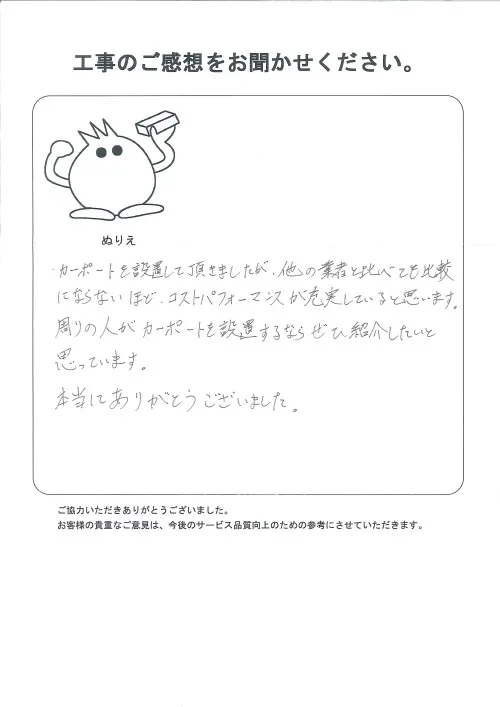 工事のご感想をお聞かせください。
ぬりえ
カーポートを設置して頂きましたが、他の業者と比べても比較
にならないほど、コストパフォーマンスが充実していると思います。
周りの人がカーポートを設置するならぜひ紹介したいと
思っています。
本当にありがとうございました。
ご協力いただきありがとうございました。
お客様の貴重なご意見は、今後のサービス品質向上のための参考にさせていただきます。